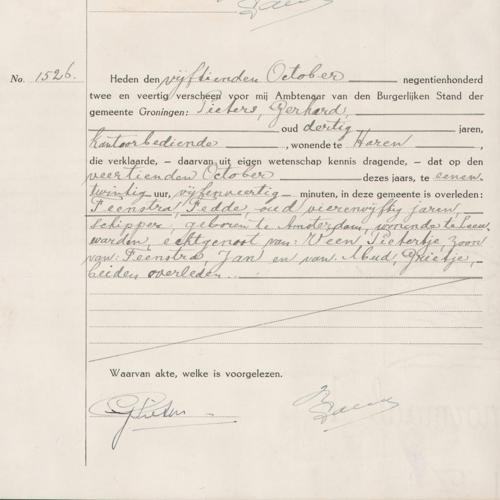 No. 1526.
Heden den vijftienden October negentienhonderd
twee en veertig verscheen voor mij Ambtenaar van den Burgerlijken Stand der
gemeente Groningen: Pieters, Gerhard,
kantoorbediende oud dertig jaren,
, wonende te Haren
die verklaarde, — daarvan uit eigen wetenschap kennis dragende, — dat op den
veertienden October dezes jaars, te eenen-
twintig uur, vijfenveertig minuten, in deze gemeente is overleden:
Feenstra, Fedde, oud vierenvijftig jaren,
schipper, geboren te Amsterdam, wonende te Leeu-
warden, echtgenoot van: Veen, Pietertje, zoon
van: Feenstra, Jan en van: Mud, Grietje,
beiden overleden.
Waarvan akte, welke is voorgelezen.
GPieters